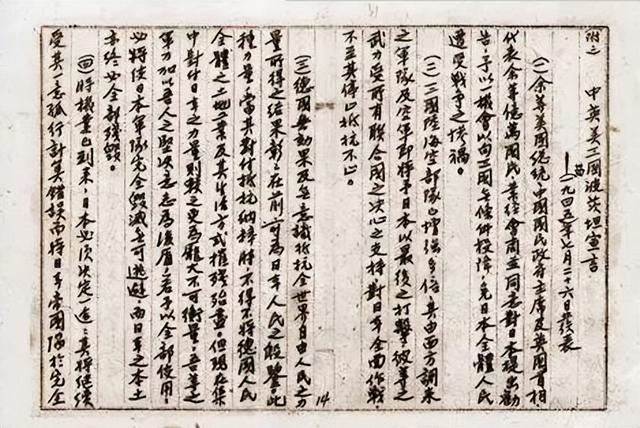 附二 中英美三國波茨坦宣言
——一九四五年七月二十六日發表
(一)余等美國總統中國國民政府主席及英國首相,
代表余等億萬國民,業經會商並同意對日本提出勸
告,予以一機會以向三國無條件投降,免日本全體人民
遭受戰爭之慘禍。
(二)三國陸海空部隊已增強多倍,其由西方調來
之軍隊及空軍即將予日本以最後之打擊,彼等之
武力受所有聯合國之決心之支持對日本全面作戰,
不至其停止抵抗不止。
14
(三)德國無効果及無意識抵抗全世界自由人民之力
量所得之結果彰彰在前,可為日本人民之殷鑒。此
種力量,當其對付抵抗納粹時不得不將德國人民
全體之土地工業及其生活方式摧殘殆盡。但現在集
中對付日本之力量則較之更為龐大不可衡量。吾等之
軍力加以吾人之堅決意志為後盾,若予以全部使用,
必將使日本軍隊完全毀滅無可逃避,而日本之本土
亦終必全部殘毀。
(四)時機業已到來,日本必須決定一途:其將繼續
受其一意孤行計算錯誤而將日本帝國陷於完全